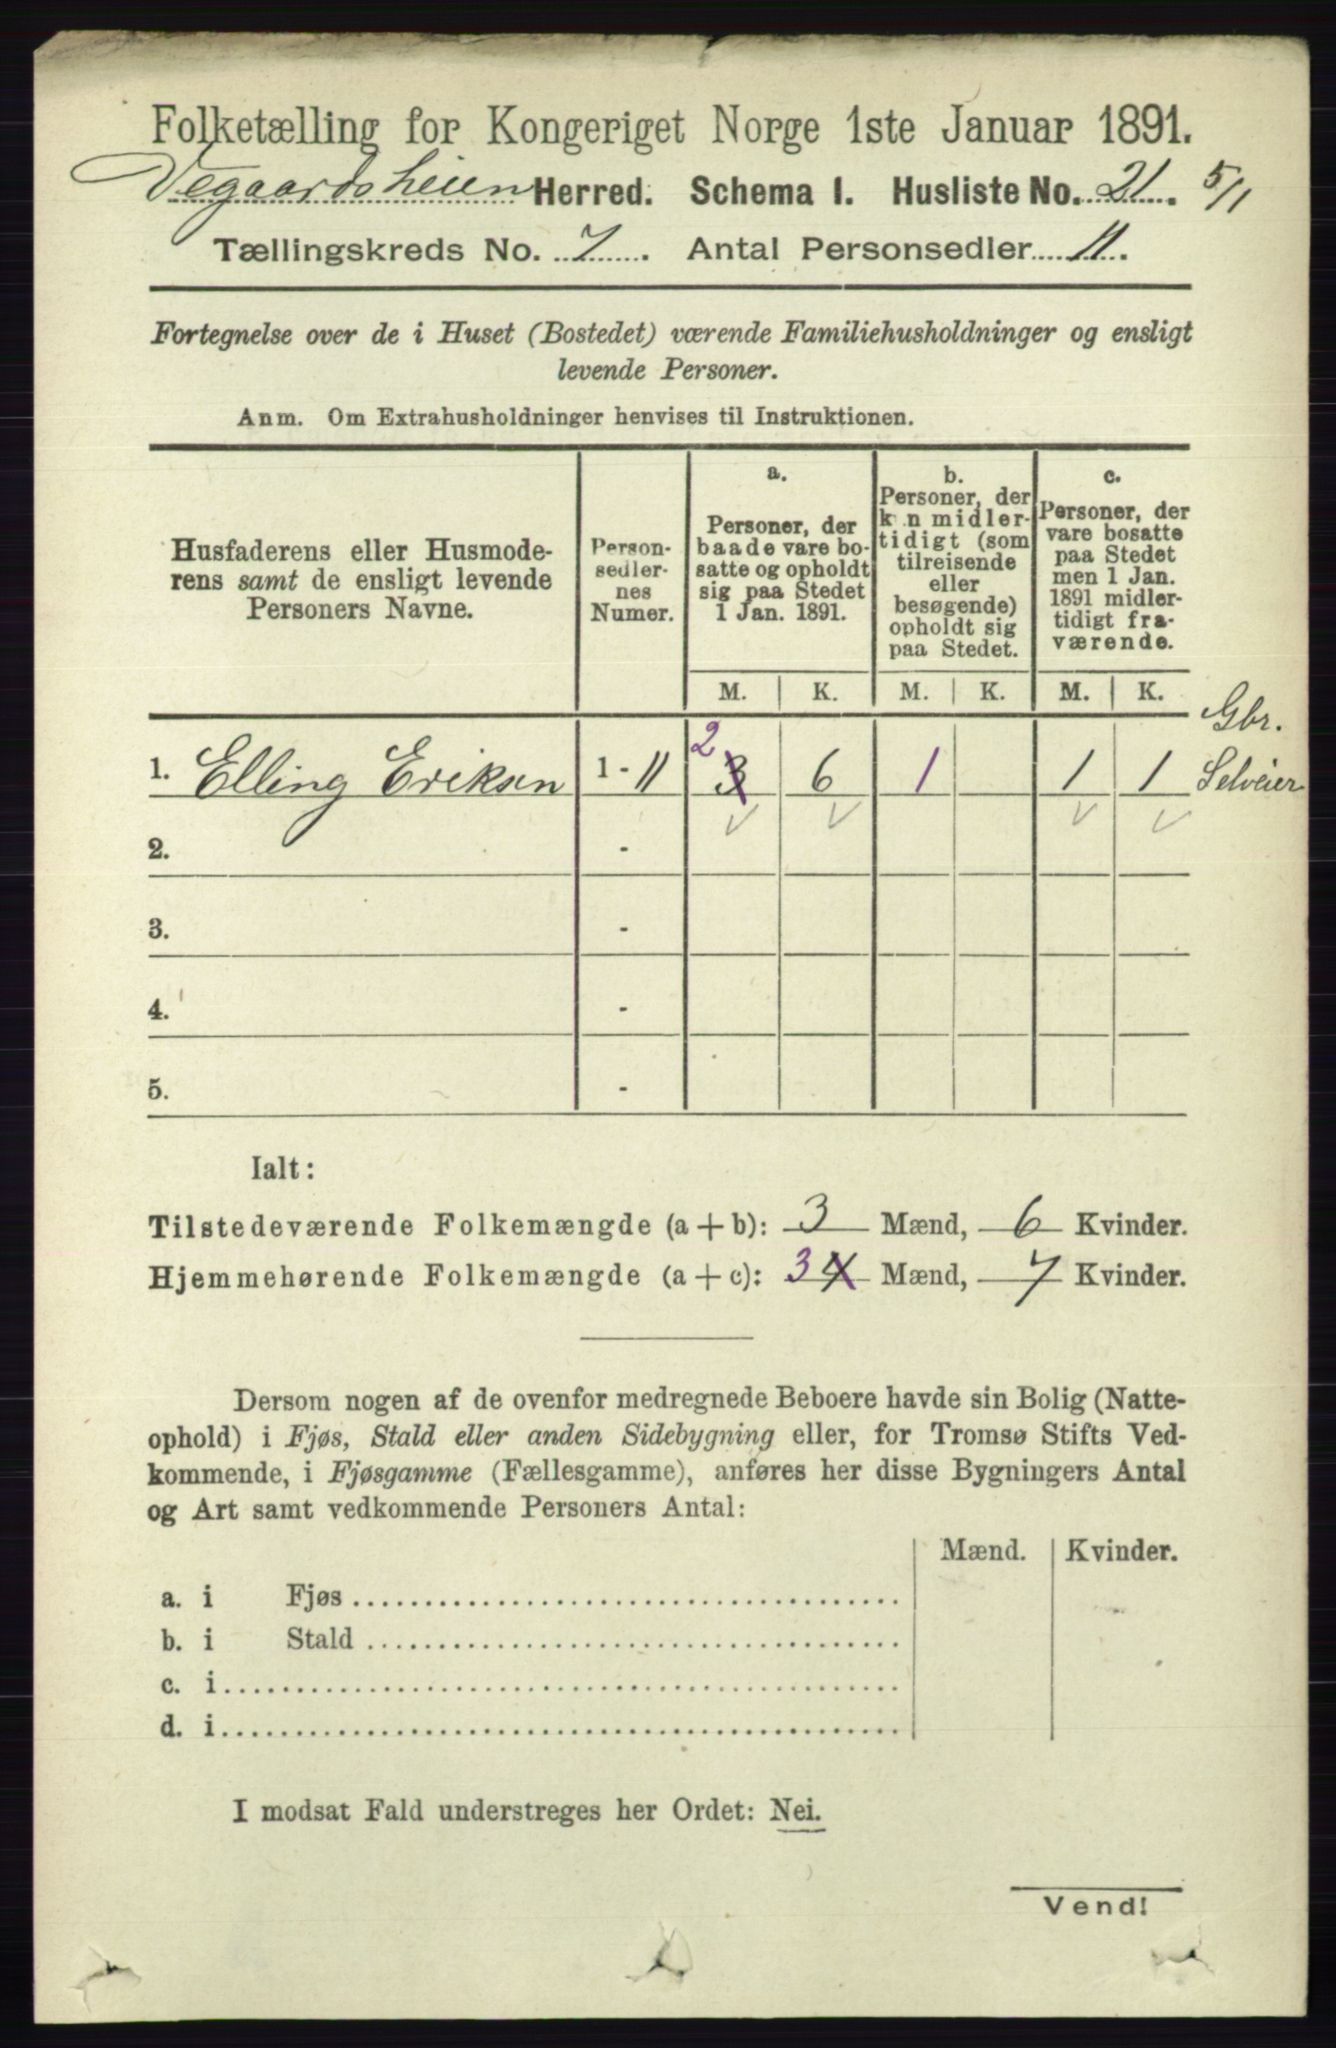 Folketælling for Kongeriget Norge 1ste Januar 1891.
Vegaardsheien Herred. Schema I. Husliste No. 21. 5/11
Tællingskreds No. 7. Antal Personsedler 11.
Fortegnelse over de i Huset (Bostedet) værende Familiehusholdninger og ensligt
levende Personer.
Anm. Om Extrahusholdninger henvises til Instruktionen.
Husfaderens eller Husmode-
rens samt de ensligt levende
Personers Navne.
Person-
sedler-
nes
Numer.
a.
Personer, der
baade vare bo-
satte og opholdt
sig paa Stedet
1 Jan. 1891.
b.
Personer, der
kun midler-
tidigt (som
tilreisende
eller
besøgende)
opholdt sig
paa Stedet.
c.
Personer, der
vare bosatte
paa Stedet
men 1 Jan.
1891 midler-
tidigt fra-
værende.
M. K. M. K. M. K.
Gbr.
1. Elling Eriksen 1 - 11 2 3 6 1 1 1 Selveier
2. -
3. -
4. -
5. -
Ialt:
Tilstedeværende Folkemængde (a + b): 3 Mænd, 6 Kvinder.
Hjemmehørende Folkemængde (a + c): 3 4 Mænd, 7 Kvinder.
Dersom nogen af de ovenfor medregnede Beboere havde sin Bolig (Natte-
ophold) i Fjøs, Stald eller anden Sidebygning eller, for Tromsø Stifts Ved-
kommende, i Fjøsgamme (Fællesgamme), anføres her disse Bygningers Antal
og Art samt vedkommende Personers Antal:
Mænd. Kvinder.
a. i Fjøs
b. i Stald
c. i
d. i
I modsat Fald understreges her Ordet: Nei.
Vend!